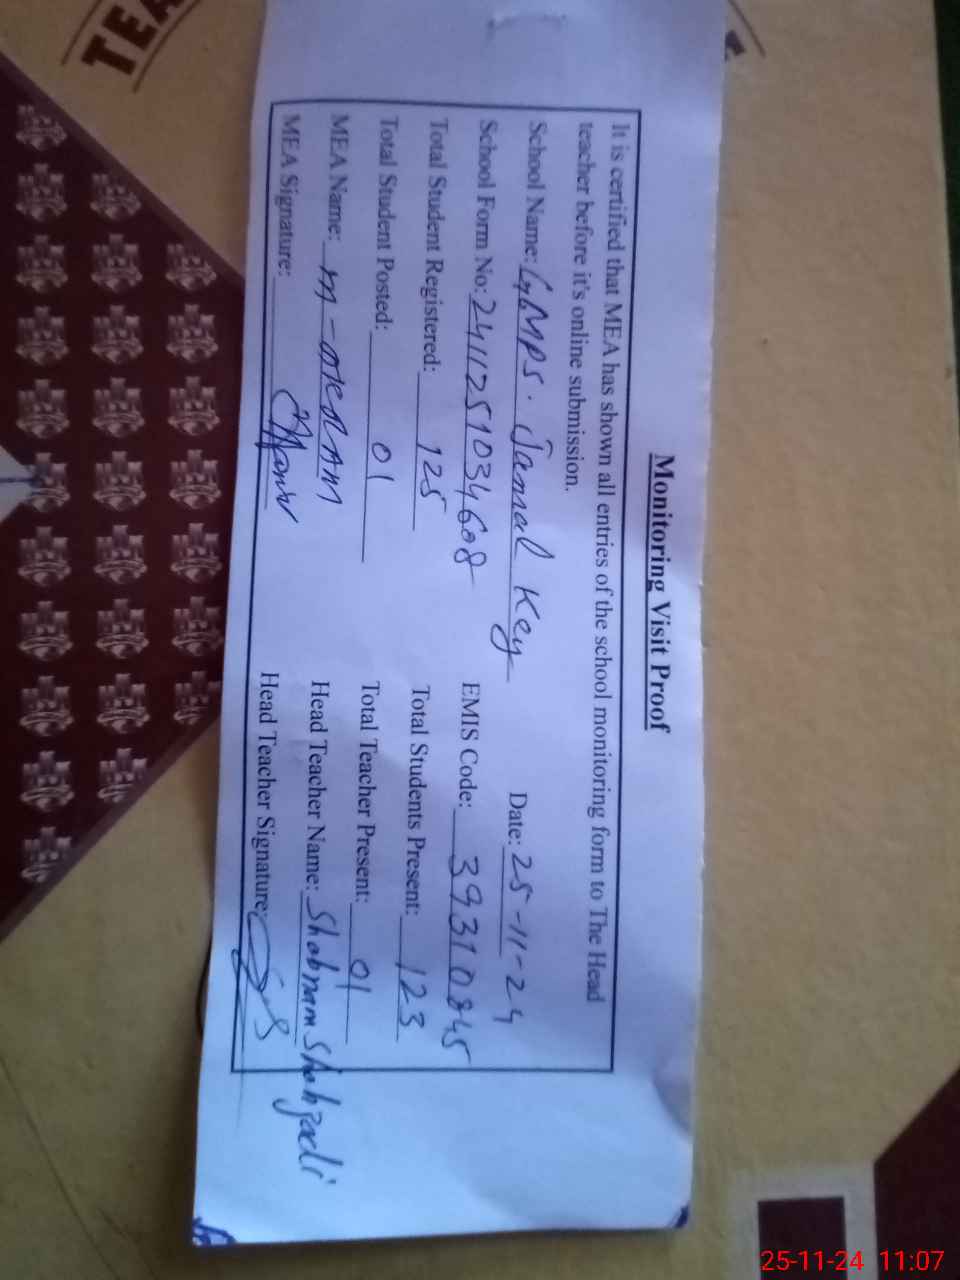 Monitoring Visit Proof
It is certified that MEA has shown all entries of the school monitoring form to The Head
teacher before it's online submission.
School Name: GGMPS. Jamal Key Date: 25-11-24
School Form No: 2411251034608 EMIS Code: 39310845
Total Student Registered: 125 Total Students Present: 123
Total Student Posted: 01 Total Teacher Present: 01
MEA Name: M- Head Teacher Name: Shabnam Shahzadi
MEA Signature: Head Teacher Signature:
TEA
25-11-24 11:07